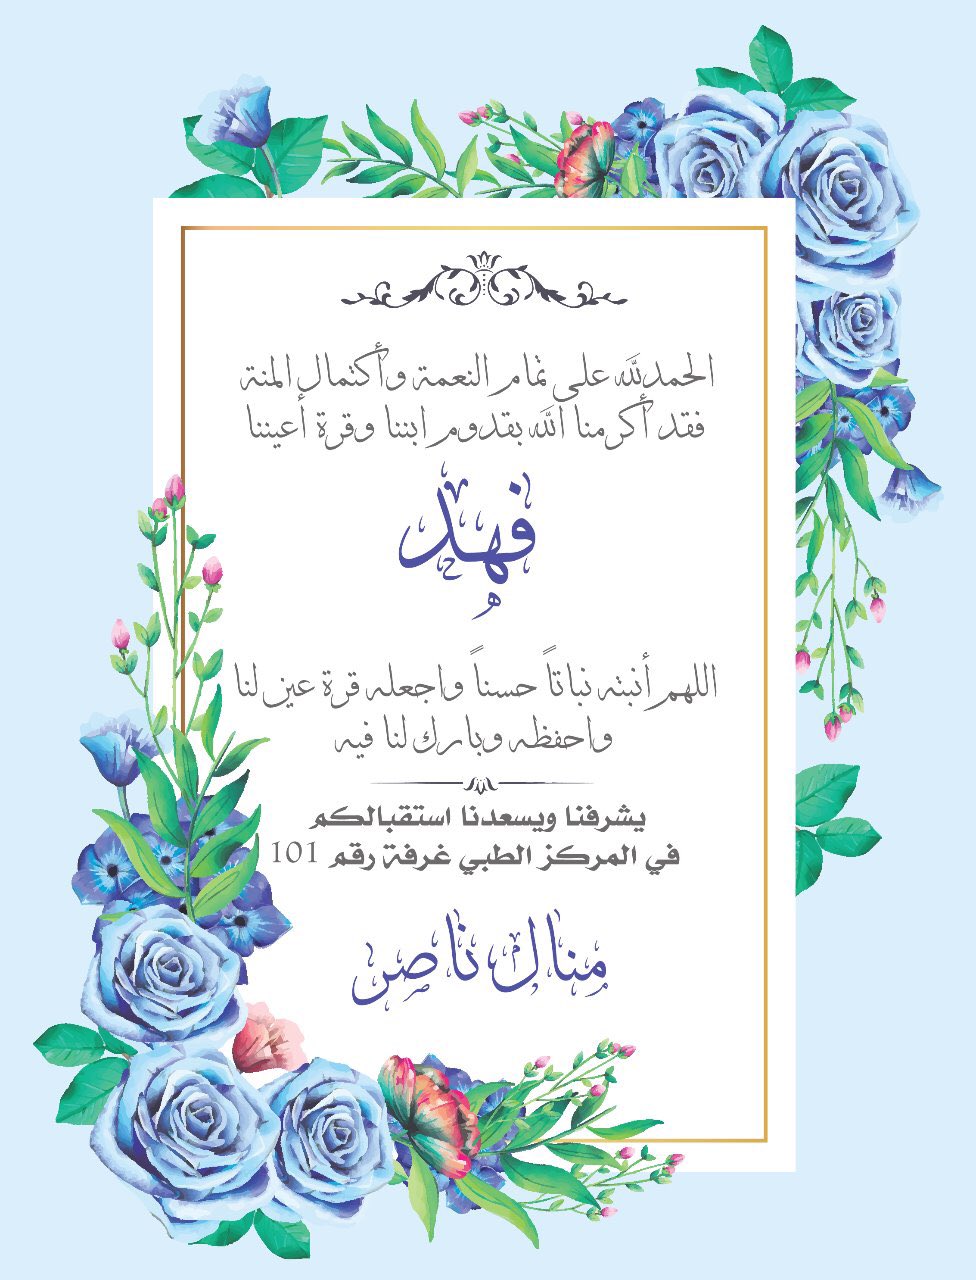 الحمدلله على تمام النعمة وأكتمال المنة
فقد أكرمنا الله بقدوم ابننا وقرة أعيننا
فهد
اللهم أنبته نباتاً حسناً واجعله قرة عين لنا
واحفظه وبارك لنا فيه
يشرفنا ويسعدنا استقبالكم
في المركز الطبي غرفة رقم 101
منال ناصر